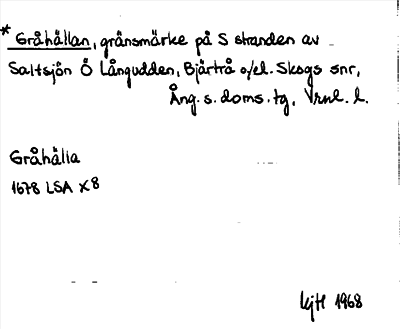 * Gråhällan, gränsmärke på S stranden av
Saltsjön Ö Långudden, Bjärtrå o/el. Skogs snr,
Ång. s. doms. tg, Vrnl. l.
Gråhälla
1678 LSA X8
1968